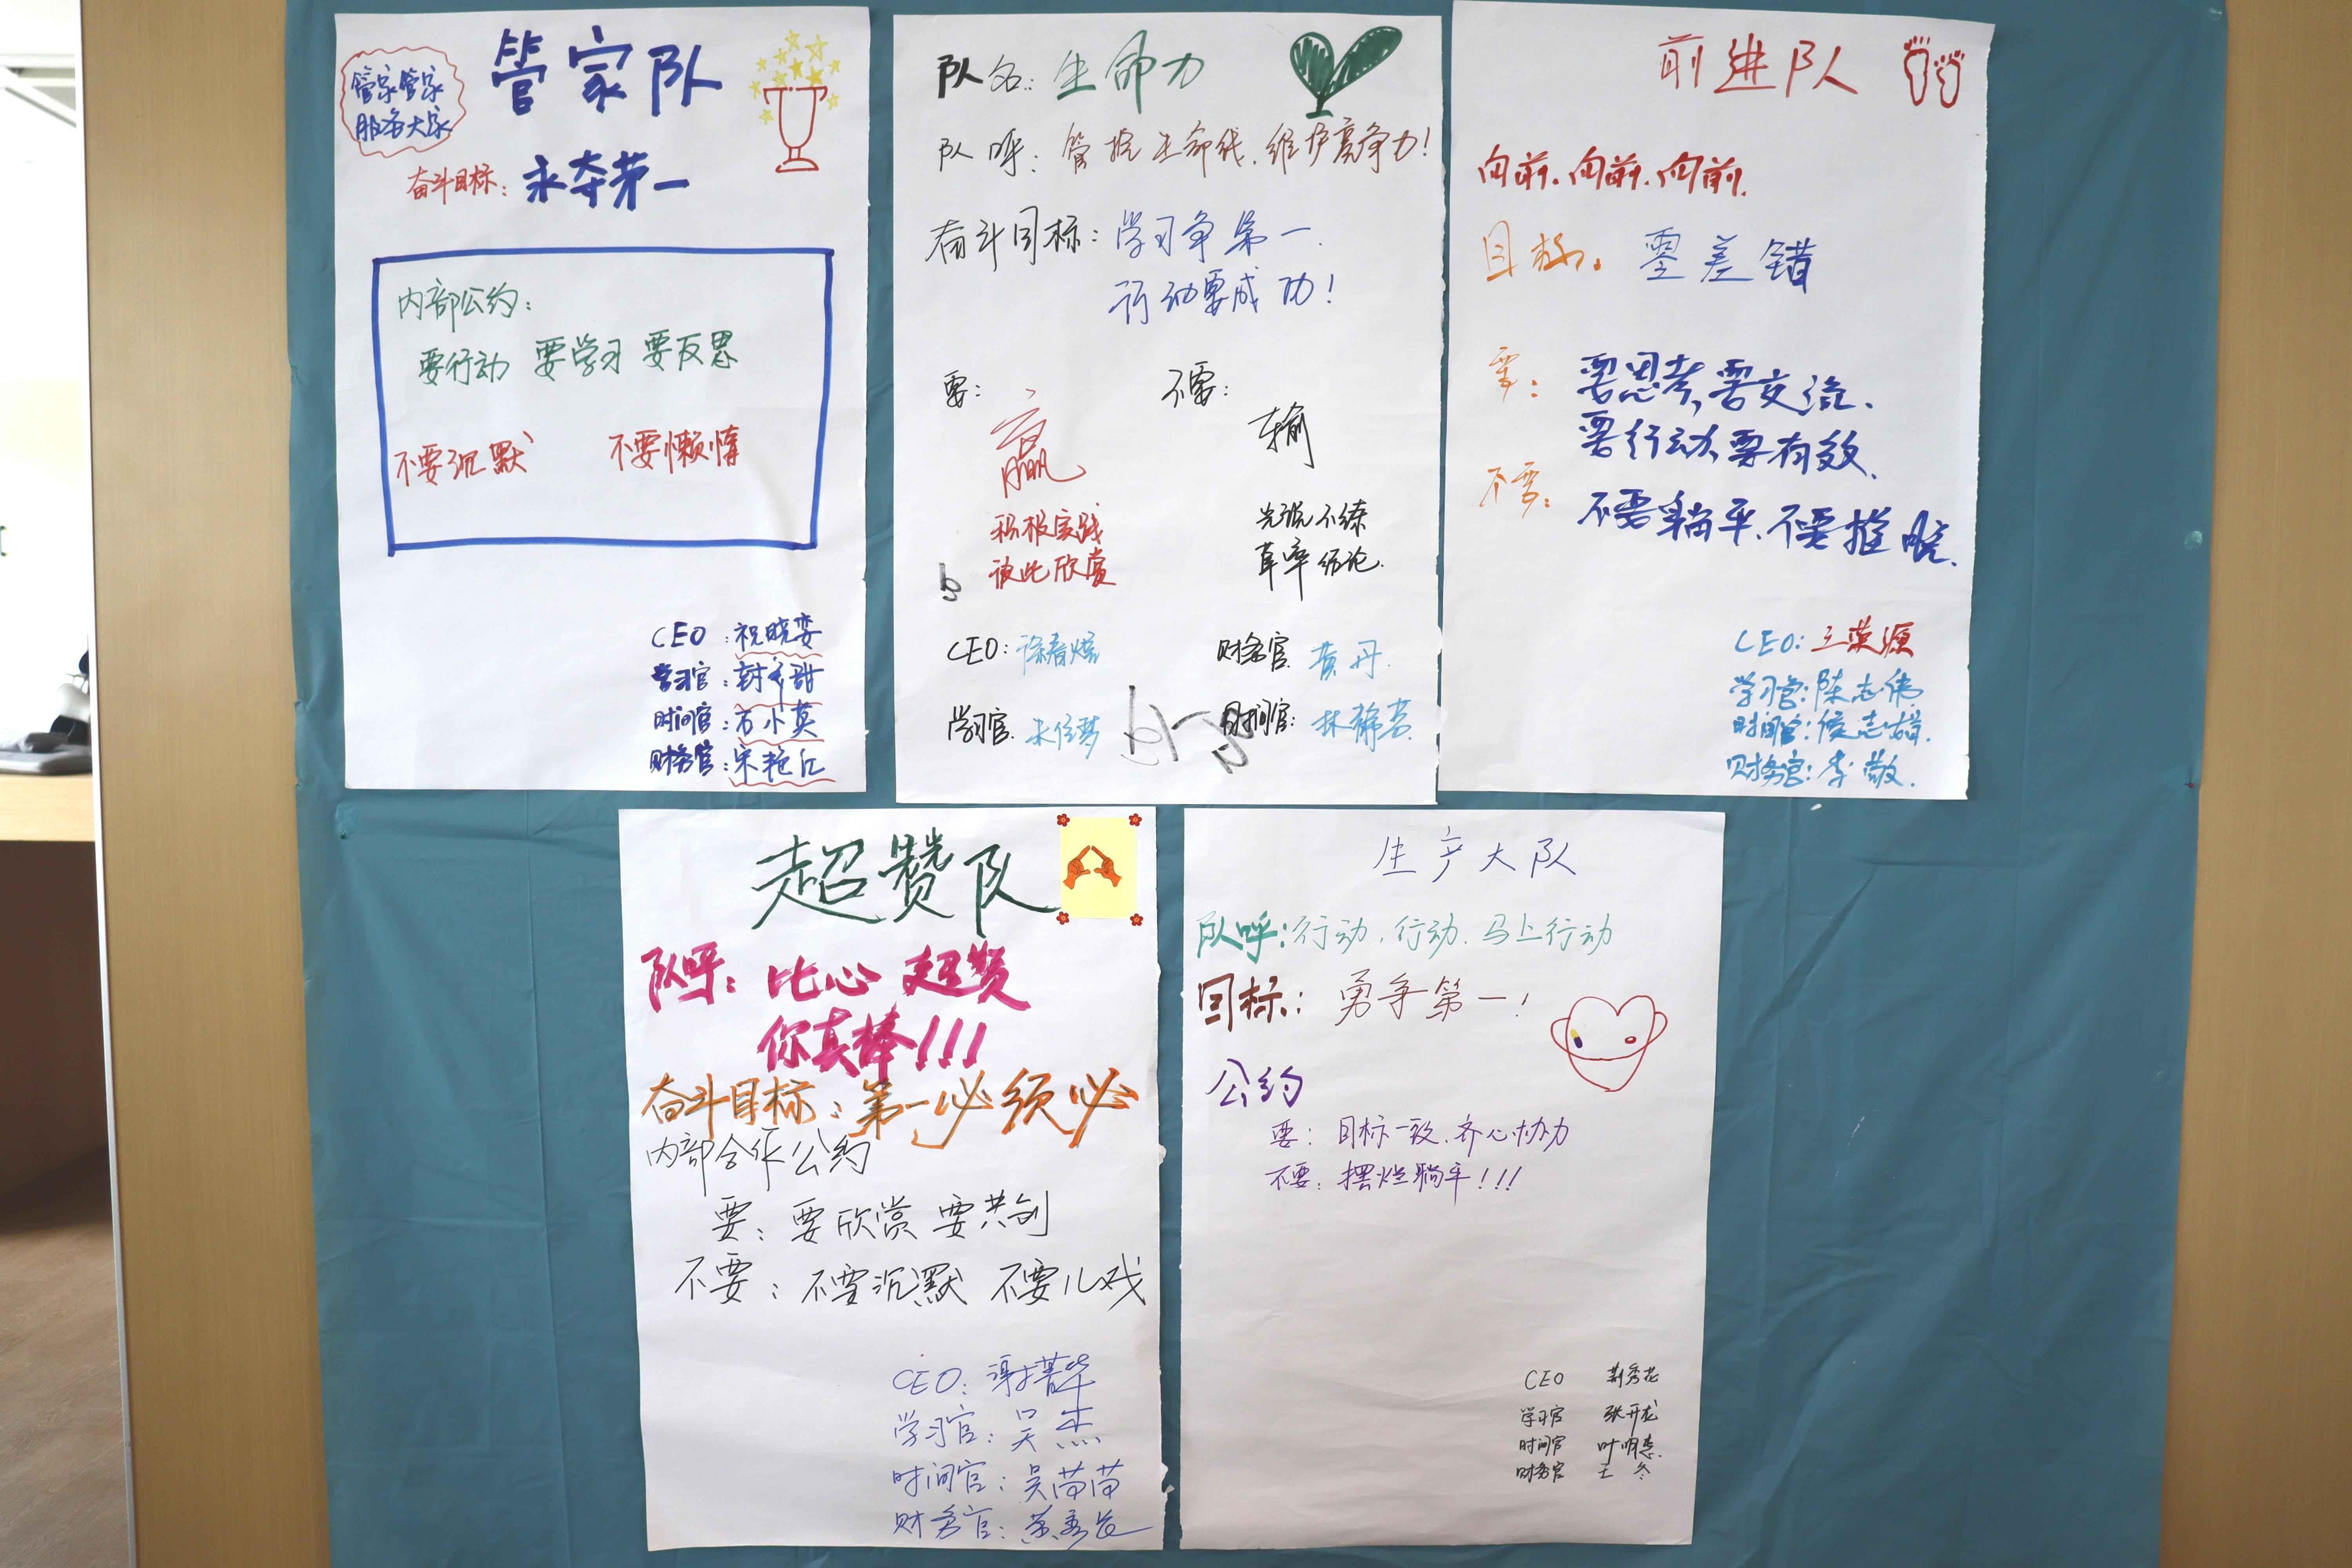 管家队
管家管家
服务大家
奋斗目标：永夺第一
内部公约：
要行动 要学习 要反思
不要沉默 不要懒惰
CEO：祝晓娈
学习官：封 甜
时间官：方小英
财务官：宋艳
队名：生命力
队呼：管控生命线，维护竞争力！
奋斗目标：学习争第一，
行动要成功！
要： 不要：
赢 输
积极实践 光说不练
彼此欣赏 草率结论.
CEO： 财务官 黄丹
学习官 时间官：林静芸
前进队
向前.向前.向前.
目标：零差错
要：要思考,要交流.
要行动,要有效.
不要：不要躺平.不要推脱.
CEO：王荣源
学习官：陈志伟
时间官：侯志
财务官：李敬.
超赞队
队呼：比心 超赞
你真棒!!!
奋斗目标：第一必须必
内部合作公约
要：要欣赏 要共创
不要：不要沉默 不要儿戏
CEO：谢菁华
学习官：吴杰
时间官：吴苗苗
财务官：
生产大队
队呼：行动，行动，马上行动
目标：勇争第一！
公约
要：目标一致.齐心协力
不要：摆烂躺平!!!
CEO 荆秀花
学习官 张开龙
时间官 叶明
财务官 王冬